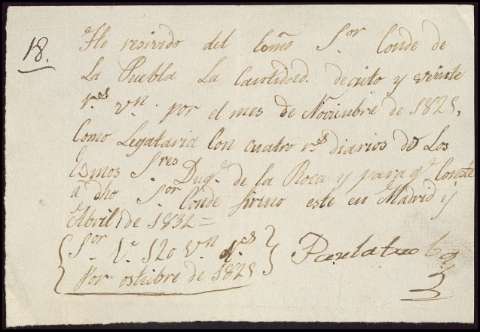 18.
He resivido del Exmo Sor Conde de
La Puebla La Cantidad de ciento y veinte
rs vn. por el mes de Noviembre de 1825,
Como Legataria Con cuatro rs diarios de Los
Exmos Sres Duqs de la Roca y para qe Conste
a dho Sor Conde firmo este en Madrid y
Abril 1 de 1832 =
Son rs 120 vn
Por octubre de 1825